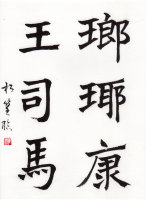 瑯琊康
王司馬